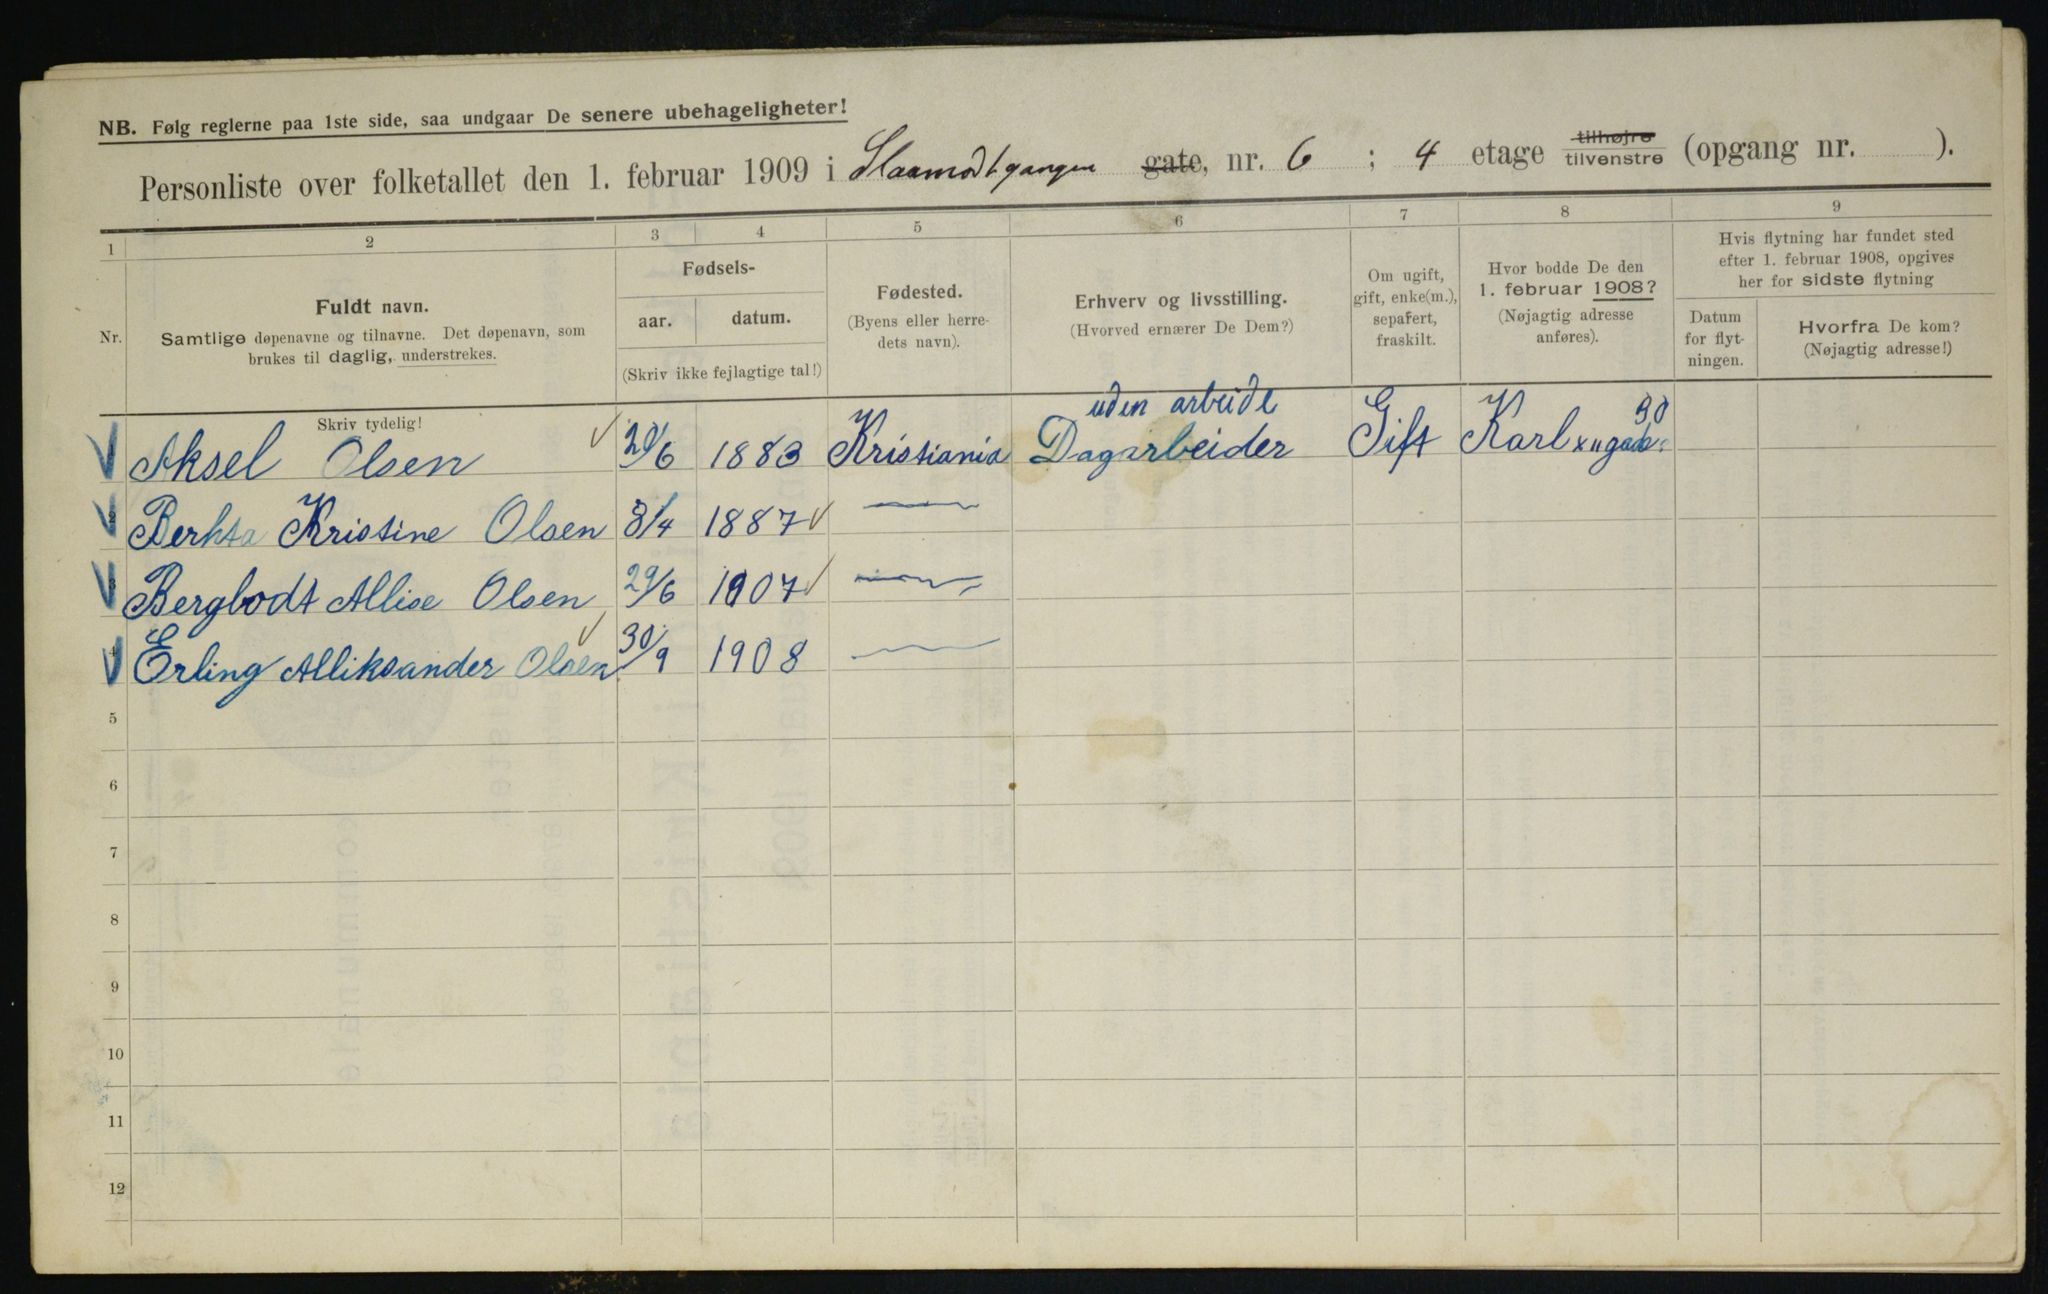 NB. Følg reglerne paa 1ste side, saa undgaar De senere ubehageligheter!
Personliste over folketallet den 1. februar 1909 i Slaamodtgangen gate, nr. 6 ; 4 etage tilhøjre tilvenstre (opgang nr. ).
1 2 3 4 5 6 7 8 9
Nr.
Fuldt navn.
Samtlige døpenavne og tilnavne. Det døpenavn, som
brukes til daglig, understrekes.
Fødsels-
aar. datum.
(Skriv ikke fejlagtige tal!)
Fødested.
(Byens eller herre-
dets navn).
Erhverv og livsstilling.
(Hvorved ernærer De Dem?)
Om ugift,
gift, enke(m.),
separert,
fraskilt.
Hvor bodde De den
1. februar 1908?
(Nøjagtig adresse
anføres).
Hvis flytning har fundet sted
efter 1. februar 1908, opgives
her for sidste flytning
Datum
for flyt-
ningen.
Hvorfra De kom?
(Nøjagtig adresse!)
Skriv tydelig!
uden arbeide
Aksel Olsen 20/6 1883 Kristiania Dagarbeider Gift Karl 30
2 Berhta Kristine Olsen 8/4 1887
3 Bergbodt Allise Olsen 29/6 1907
4 Erling Alliksander Olsen 30/9 1908
5
6
7
8
9
10
11
12